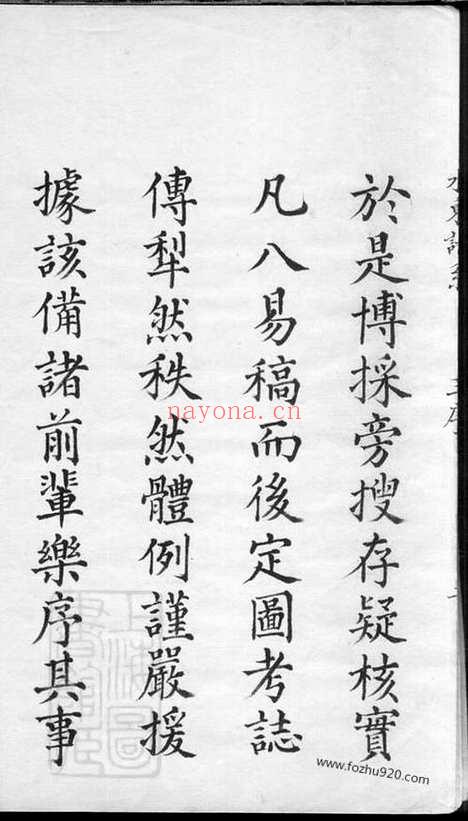 於是博採旁搜存疑核實
凡八易稿而後定圖考誌
傳犁然秩然體例謹嚴援
據該備諸前輩樂序其事
nayona.cn
www.fozhu920.com